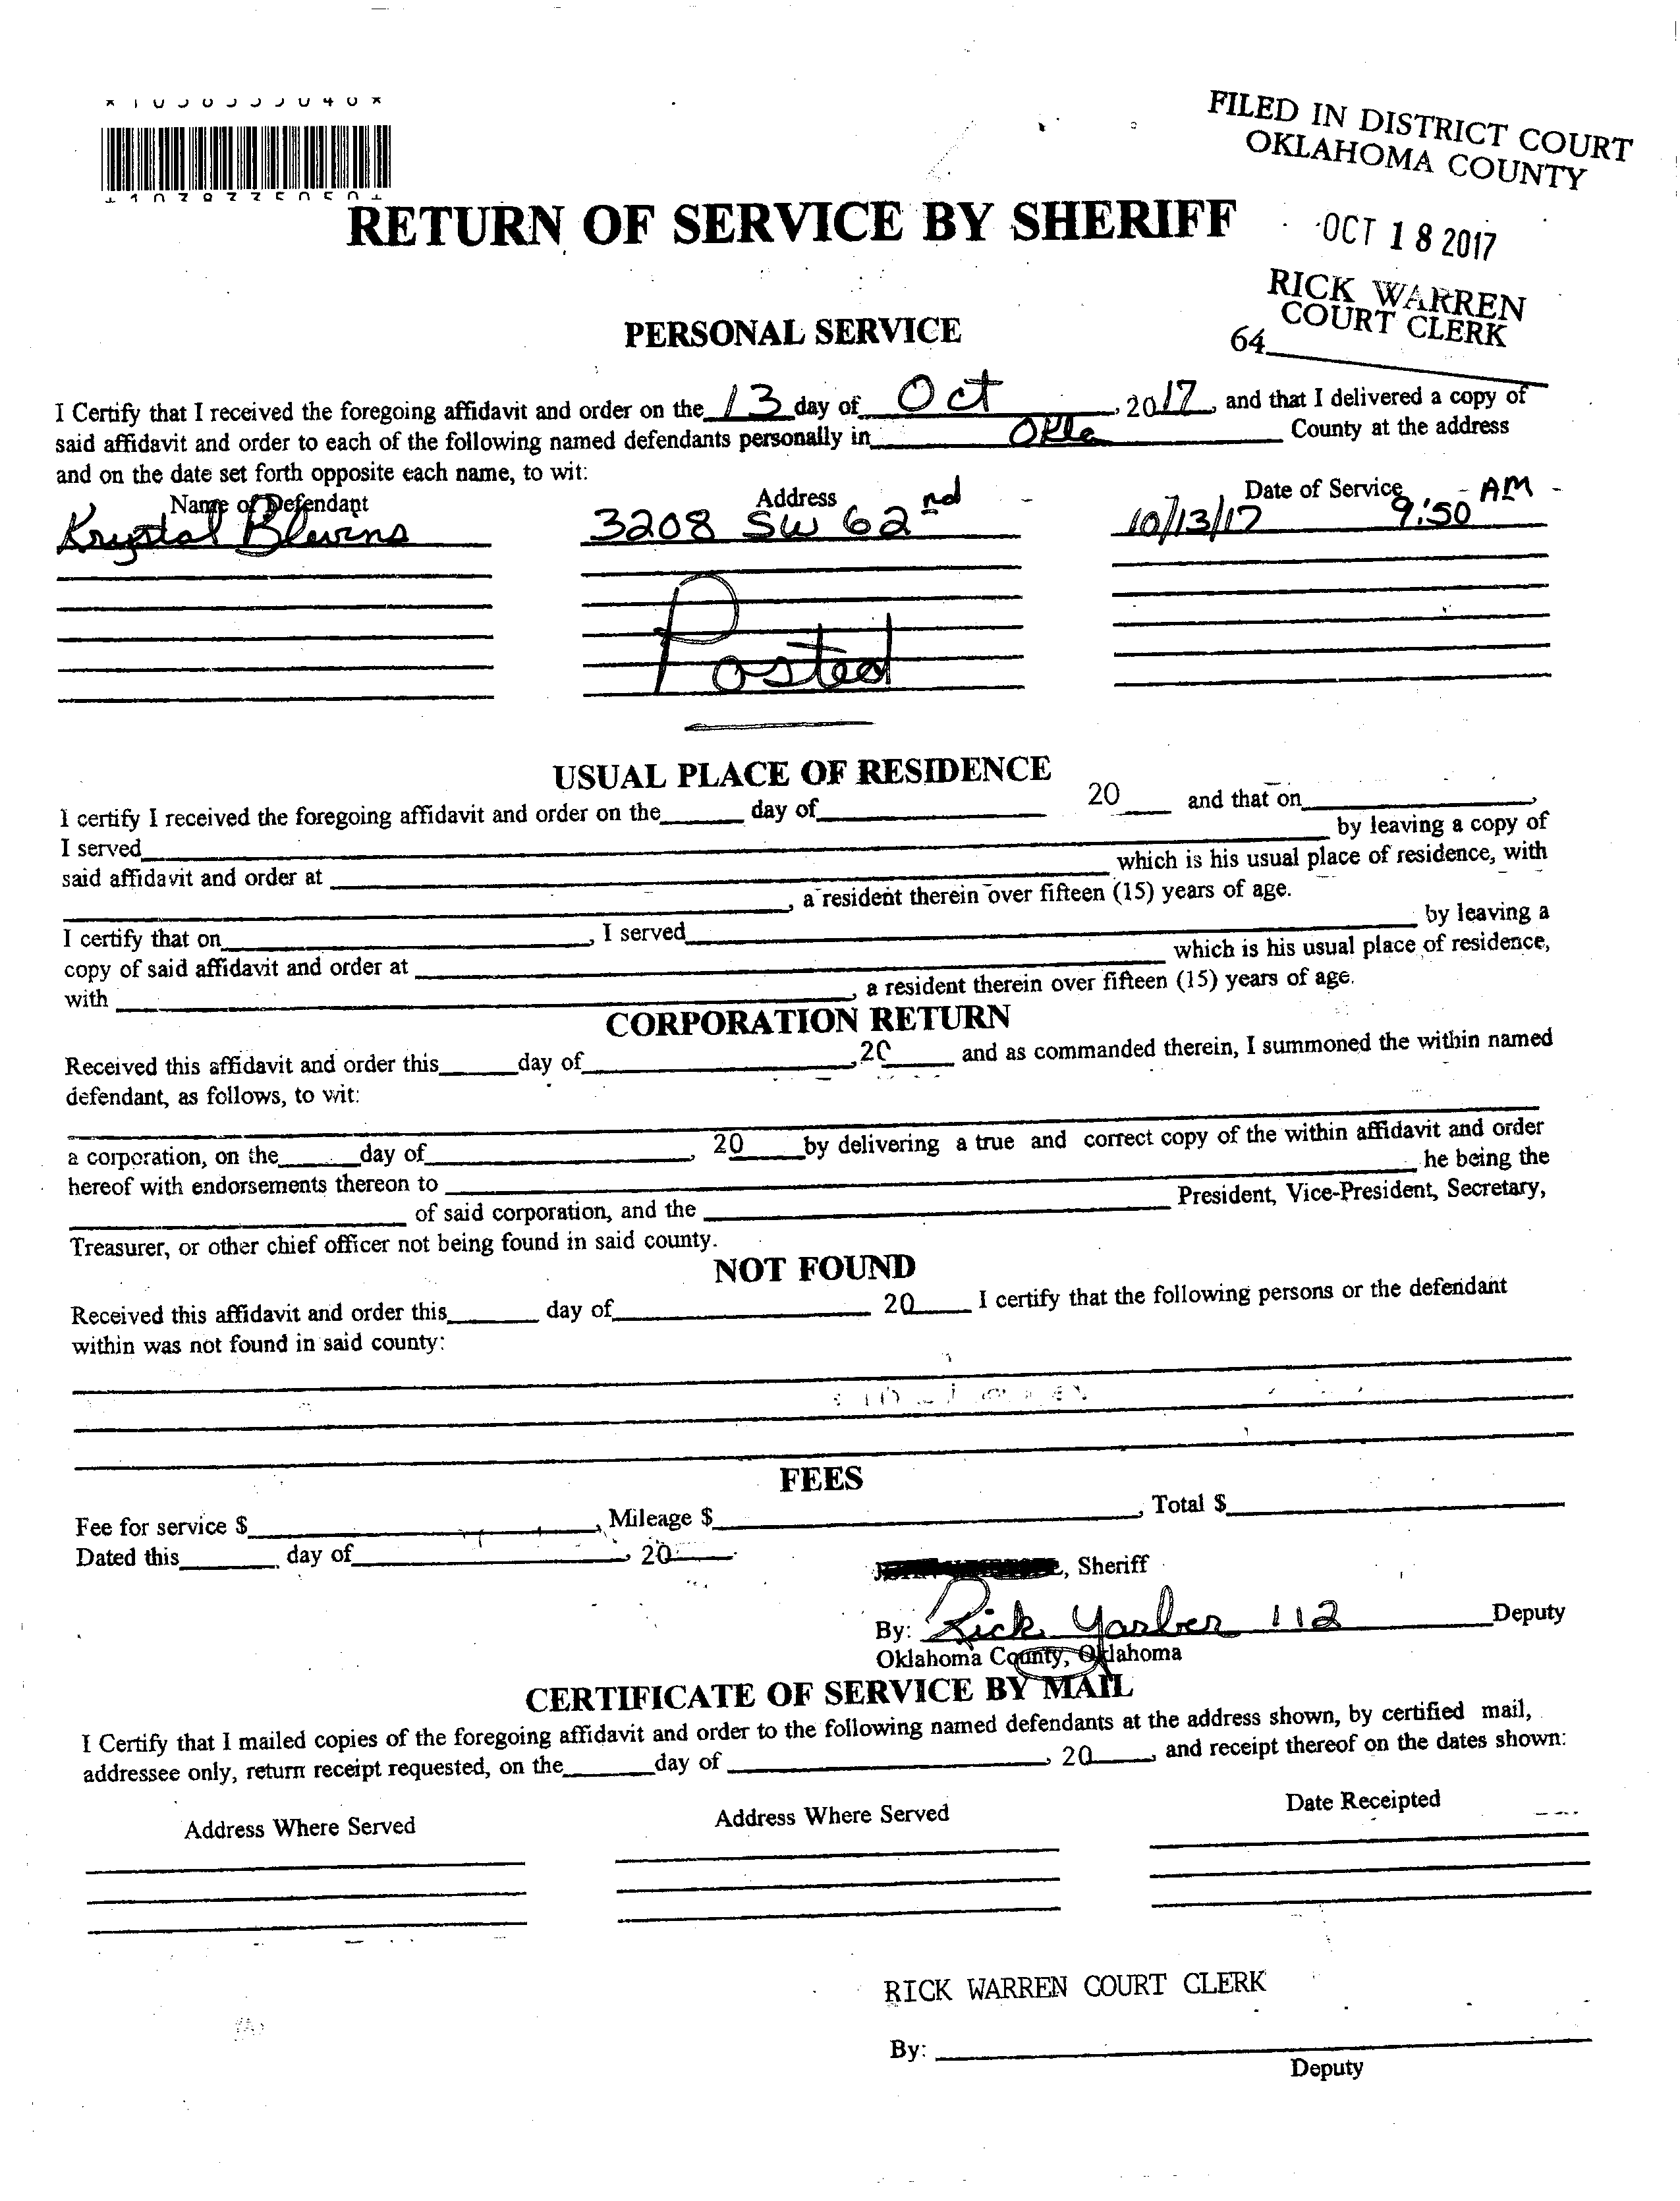 FILED IN DISTRICT COURT
OKLAHOMA COUNTY
RETURN OF SERVICE BY SHERIFF
OCT 18 2017
RICK WARREN
COURT CLERK
64
PERSONAL SERVICE
I Certify that I received the foregoing affidavit and order on the 13 day of Oct, 2017, and that I delivered a copy of
said affidavit and order to each of the following named defendants personally in Okla County at the address
and on the date set forth opposite each name, to wit:
Name of Defendant Address Date of Service
Krystal Blevins 3208 SW 62nd 10/13/17 9:50 AM
Posted
USUAL PLACE OF RESIDENCE
I certify I received the foregoing affidavit and order on the day of 20 and that on,
I served by leaving a copy of
said affidavit and order at which is his usual place of residence, with
, a resident therein over fifteen (15) years of age.
I certify that on, I served by leaving a
copy of said affidavit and order at which is his usual place of residence,
with, a resident therein over fifteen (15) years of age.
CORPORATION RETURN
Received this affidavit and order this day of, 20 and as commanded therein, I summoned the within named
defendant, as follows, to wit:
a corporation, on the day of, 20 by delivering a true and correct copy of the within affidavit and order
hereof with endorsements thereon to he being the
of said corporation, and the President, Vice-President, Secretary,
Treasurer, or other chief officer not being found in said county.
NOT FOUND
Received this affidavit and order this day of 20 I certify that the following persons or the defendant
within was not found in said county:
FEES
Fee for service $, Mileage $, Total $
Dated this day of, 20
, Sheriff
By: Rick Yarber 112 Deputy
Oklahoma County, Oklahoma
CERTIFICATE OF SERVICE BY MAIL
I Certify that I mailed copies of the foregoing affidavit and order to the following named defendants at the address shown, by certified mail,
addressee only, return receipt requested, on the day of, 20, and receipt thereof on the dates shown:
Address Where Served Address Where Served Date Receipted
RICK WARREN COURT CLERK
By:
Deputy